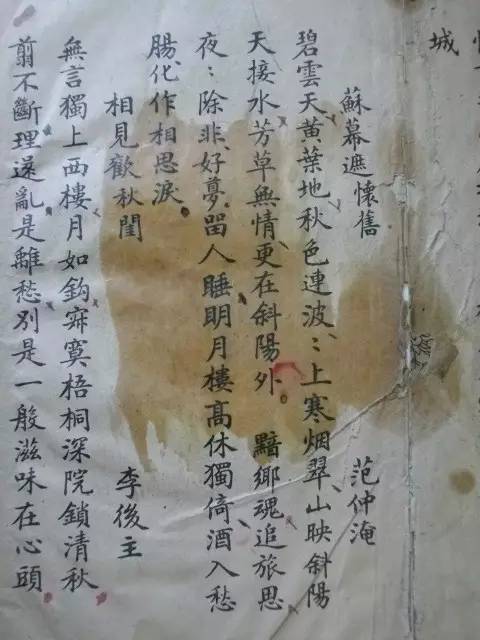 城
蘇幕遮懷舊 范仲淹
碧雲天黃葉地秋色連波：上寒烟翠山映斜陽
天接水芳草無情更在斜陽外。黯鄉魂追旅思
夜：除非好夢畱人睡明月樓高休獨倚酒入愁
腸化作相思淚
相見歡秋閨 李後主
無言獨上西樓月如鈎寂寞梧桐深院鎖清秋
翦不斷理還亂是離愁別是一般滋味在心頭